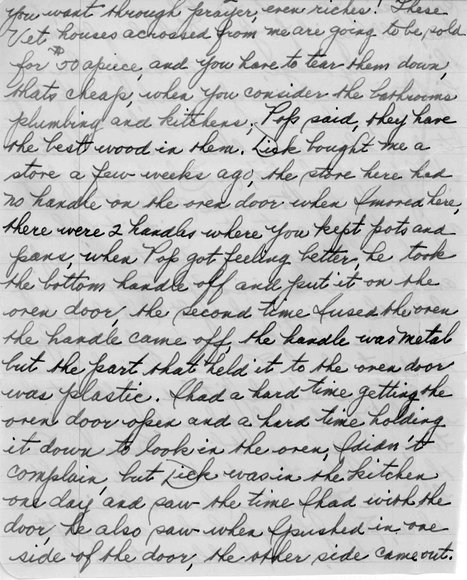 you want through prayer, even riches! These
Vet. houses acrossed from me are going to be sold
for $50 apiece, and you have to tear them down,
thats cheap, when you consider the bathrooms
plumbing and kitchens, Pop said, they have
the best wood in them. Dick bought me a
stove a few weeks ago, the stove here had
no handle on the oven door when I moved here,
there were 2 handles where you kept pots and
pans, when Pop got feeling better, he took
the bottom handle off and put it on the
oven door, the second time I used the oven
the handle came off, the handle was metal
but the part that held it to the oven door
was plastic. I had a hard time getting the
oven door open and a hard time holding
it down to look in the oven, I didn't
complain, but Dick was in the kitchen
one day, and saw the time I had with the
door, he also saw when I pushed in one
side of the door, the other side came out.